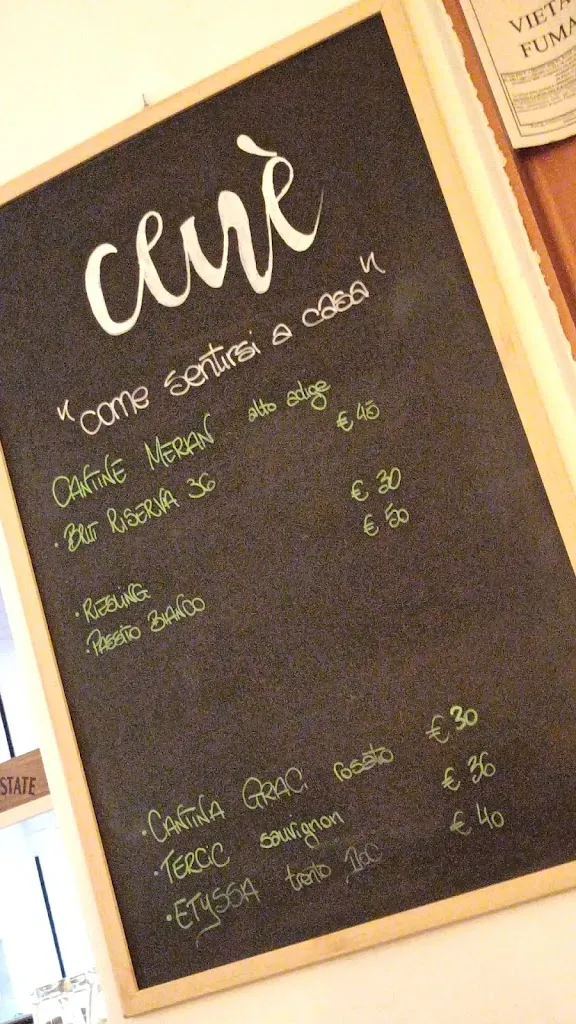 cenè
"come sentirsi a casa"
CANTINE MERAN alto adige
• BRUT RISERVA 36 € 45
• RIESLING € 30
• PASSITO BIANCO € 50
• CANTINA GRACI rosato € 30
• TERCIC sauvignon € 36
• ETYSSA trento DOC € 40
VIETA
FUMA
STATE